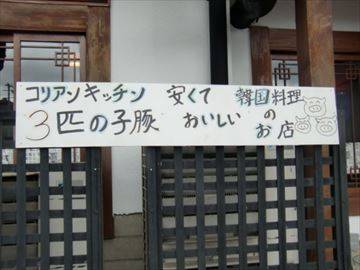 コリアンキッチン 安くて 韓国料理
3匹の子豚 おいしい のお店